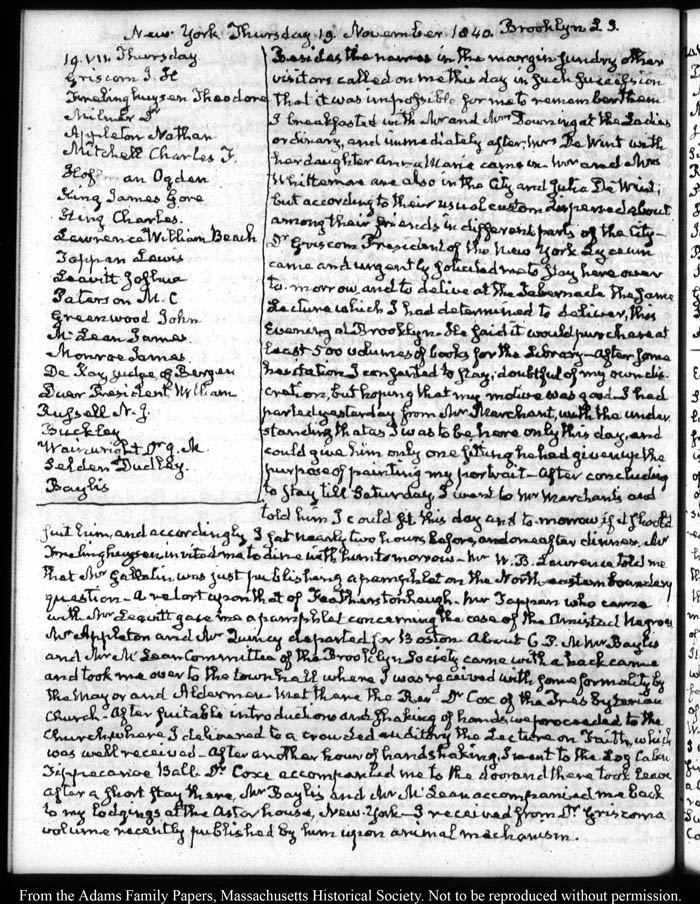 New York Thursday 19. November 1840. Brooklyn L I.
19. VII. Thursday
Griscom J. H
Frelinghuysen Theodore
Milnor Dr
Appleton Nathan
Mitchell Charles F.
Hoffman Ogden
King James Gore
King Charles.
Lawrence William Beach
Tappan Lewis
Leavitt Joshua
Paterson M. C
Greenwood John
McLean James.
Monroe James.
De Kay, judge of Bergen
Duer President William
Russell N. J.
Buckley
Wainwright Dr J. M.
Selden Dudley.
Baylis
Besides the names in the margin sundry other
visitors called on me this day in such succession
that it was impossible for me to remember them
I breakfasted with Mr and Mrs Downing at the Ladies
ordinary, and immediately after, Mrs De Wint with
her daughter Anna Maria came in. Mr and Mrs
Whittemore are also in the City and Julia De Wint;
but according to their usual custom dispersed about
among their friends in different parts of the City—
Dr Griscom President of the New York Lyceum
came and urgently solicited me to stay here over
to-morrow, and to deliver at the Tabernacle the same
Lecture which I had determined to deliver, this
Evening at Brooklyn. He said it would purchase at
least 500 volumes of books for the Library—After some
hesitation I consented to stay; doubtful of my own dis-
cretion, but hoping that my motive was good. I had
parted yesterday from Mr Marchant, with the under
standing that as I was to be here only this day, and
could give him only one sitting he had given up the
purpose of painting my portrait—After concluding
to stay till Saturday, I went to Mr Marchant's and
told him I could sit this day and to-morrow if it should
suit him, and accordingly I sat nearly two hours before, and one after dinner. Mr
Frelinghuysen invited me to dine with him tomorrow—Mr W. B. Lawrence told me
that Mr Gallatin was just publishing a pamphlet on the North-eastern boundary
question—A retort upon that of Featherstonhaugh. Mr Tappan who came
with Mr Leavitt gave me a pamphlet concerning the case of the Amistad Negroes
Mr Appleton and Mr Quincy departed for Boston. About 6. P. M. Mr Baylis
and Mr McLean Committee of the Brooklyn Society came with a hack came
and took me over to the town hall where I was received with some formality by
the Mayor and Aldermen. Met there the Revd Dr Cox of the Presbyterian
Church—After suitable introductions and shaking of hands, we proceeded to the
Church, where I delivered to a crowded auditory the Lecture on Faith, which
was well received—After another hour of handshaking, I went to the Log Cabin
Tippecanoe Ball. Dr Coxe accompanied me to the door and there took leave
After a short stay there, Mr Baylis and Mr McLean accompanied me back
to my lodgings at the Astor house, New-York—I received from Dr Griscom a
volume recently published by him upon animal mechanism.
From the Adams Family Papers, Massachusetts Historical Society. Not to be reproduced without permission.